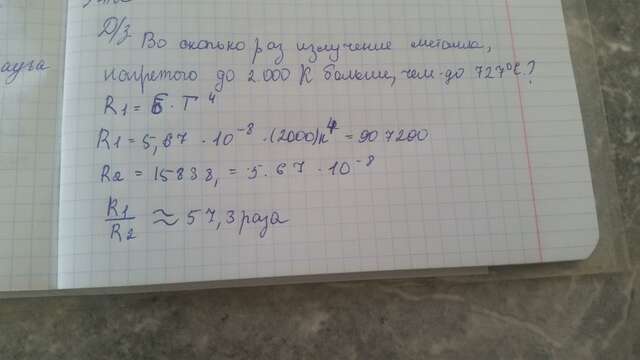 Д/з. Во сколько раз излучение металла,
ауга
нагретого до 2000 К больше, чем до 727°С?
R1 = б · T⁴
R1 = 5,67 · 10⁻⁸ · (2000)К⁴ = 907200
R2 = 15838, = 5.67 · 10⁻⁸
R1/R2 ≈ 57,3 раза